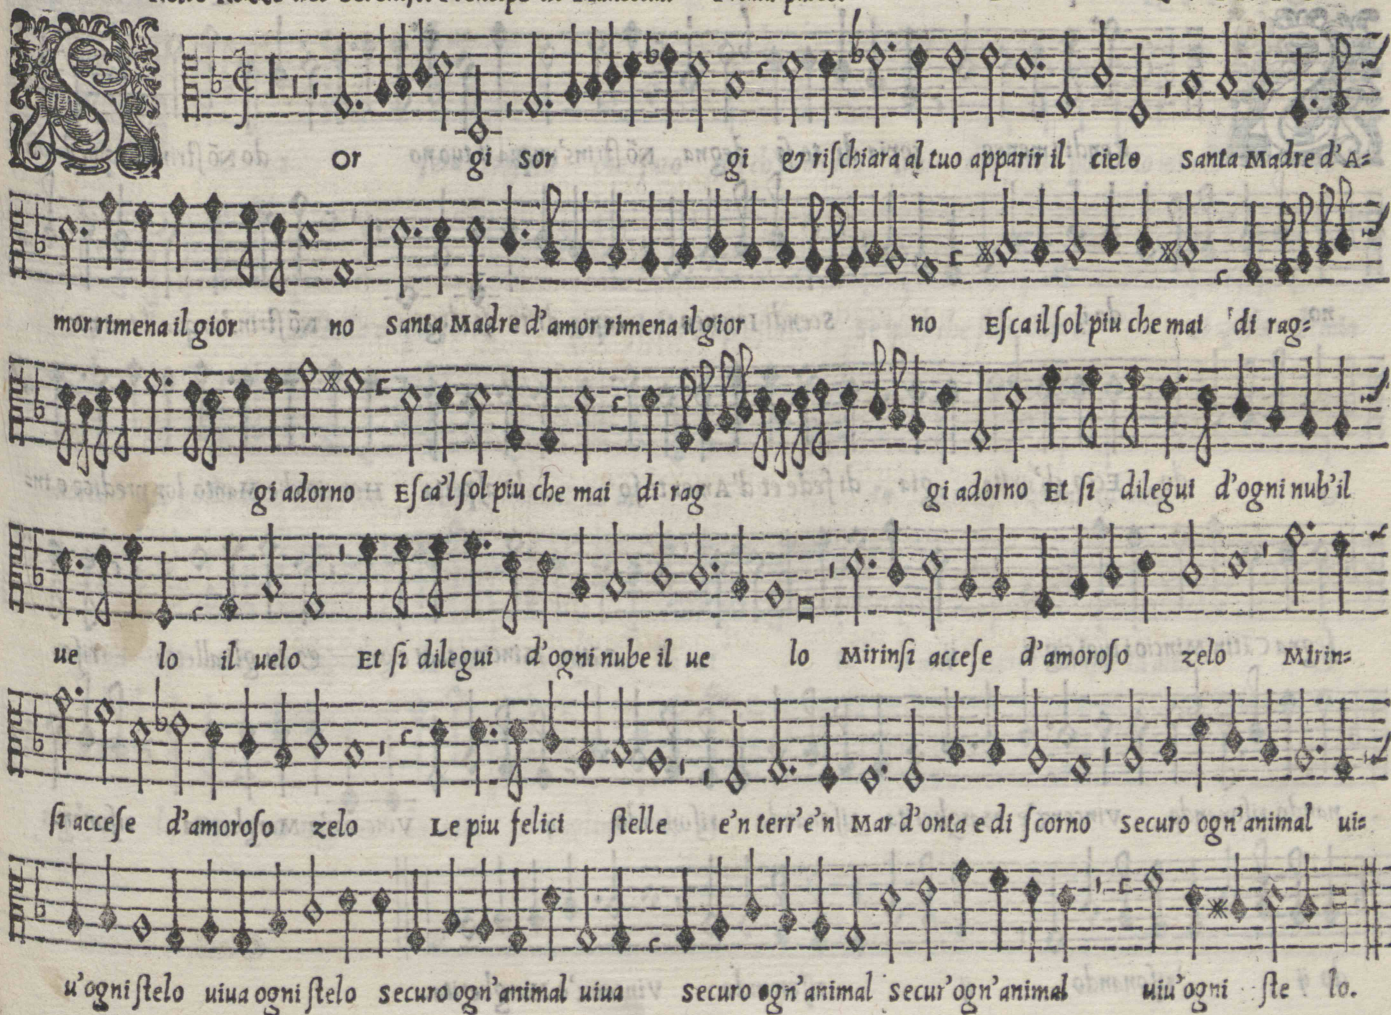 S
or gi sor gi & riſchiara al tuo apparir il cielo Santa Madre d'A=
mor rimena il gior no Santa Madre d'amor rimena il gior no Eſca il ſol piu che mai di rag=
gi adorno Eſca'l ſol piu che mai di rag gi adorno Et ſi dilegui d'ogni nub'il
ue lo il uelo Et ſi dilegui d'ogni nube il ue lo Mirinſi acceſe d'amoroſo zelo Mirin=
ſi acceſe d'amoroſo zelo Le piu felici ſtelle e'n terr'e'n Mar d'onta e di ſcorno Securo ogn'animal ui=
u'ogni ſtelo uiua ogni ſtelo Securo ogn'animal uiua Securo ogn'animal Secur'ogn'animal uiu'ogni ſte lo.